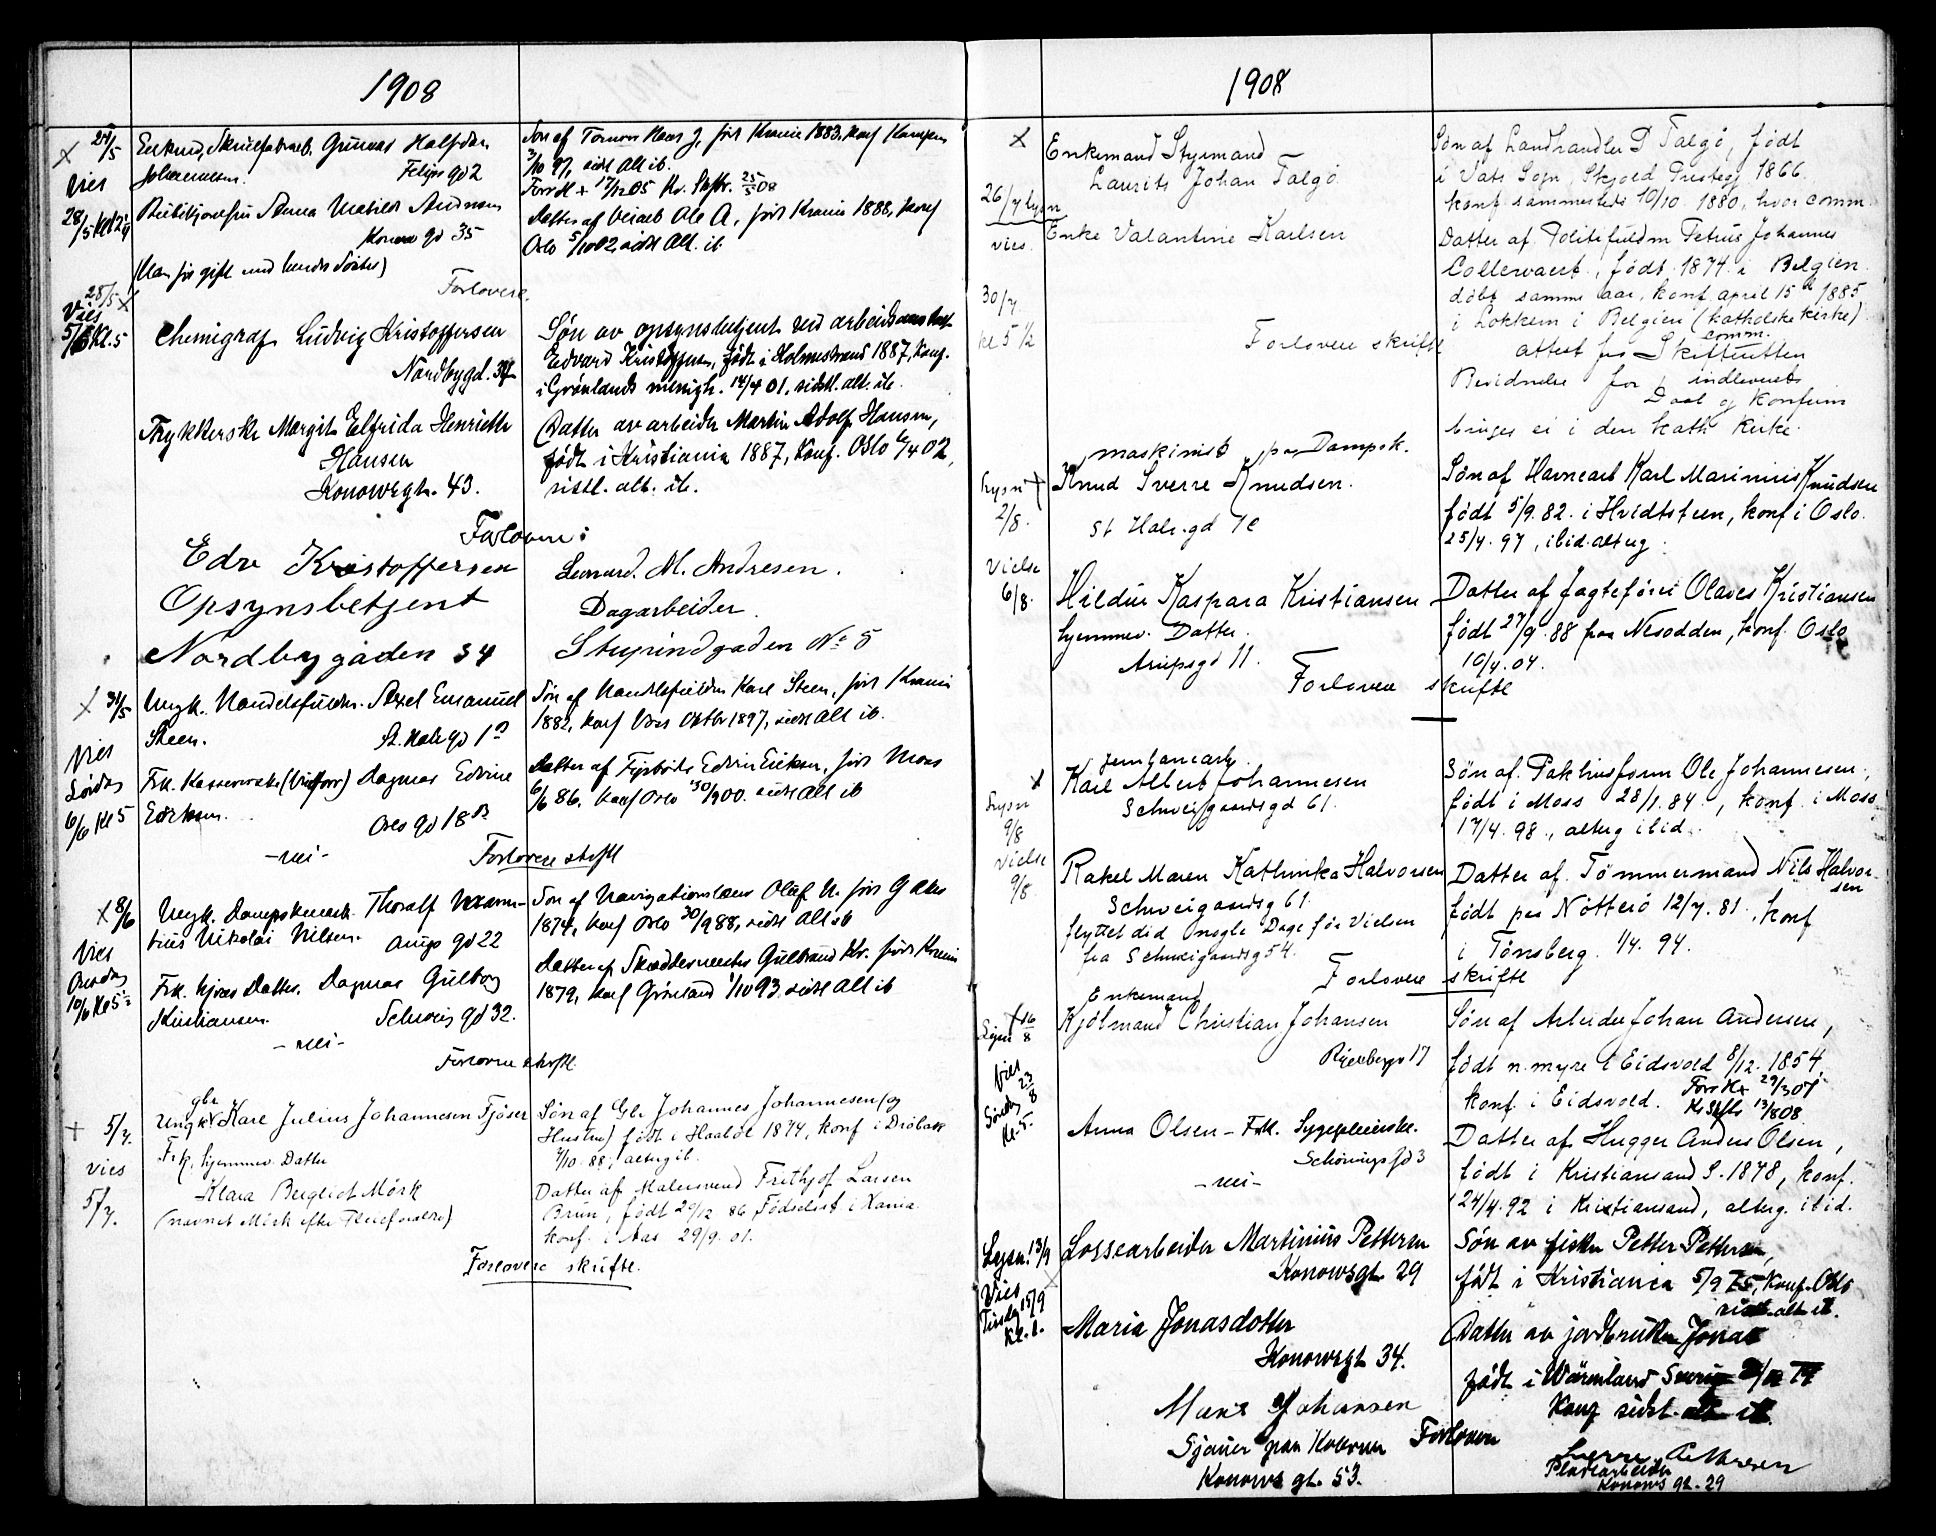 1908
24/5 Enkmd, Skruefabrarb. Gunnar Halfdan
Johannesen. Felips gd 2
Søn af Tømrer Hans J, født Krania 1883, konf Kampen
3/10 97, sidst Alt ib.
Forr H + 17/12 05 Kr. Skftr. 25/5 08
Vies
28/5 Kl 12 1/4
Anna Matilde Andersen
Konow gd 35
Datter af Veiarb Ole A, født Krania 1888, konf
Oslo 5/10 02 sidst Alt. ib
(Han før gift med hendes Søster)
Forlovere
28/5 X
Vies
5/6 Kl. 5
Chemigraf Ludvig Kristoffersen
Nordbygd. 34
Søn av opsynsbetjent ved arbeidsanstalt
Edvard Kristoffersen, født i Holmestrand 1887, Konf.
i Grønlands menigh. 14/4 01, sidstl. alt. ib.
Trykkerske Margit Elfrida Henriette
Hansen
Konowsgt. 43.
Datter av arbeider Martin Adolf Hansen,
født i Kristiania 1887, Konf. Oslo 6/4 02,
sidstl. alt. ib.
Forlovere:
Edv Kristoffersen
Opsynsbetjent
Nordbygaden 34
Leonard. M. Andresen.
Dagarbeider
Stupindgaden No 5
X 31/5 Ungk. Handelsfuldm. Axel Emanuel
Steen. St. Hals gd 1 B
Søn af Handelsfuldm Karl Steen, født Krania
1882, konf Vors Oktbr 1897, sidst Alt ib.
Vies
Lørdag
6/6 Kl 5
Frk. Kassererske Dagmar Edvine
Eriksen. Oslo gd 18 B
Datter af Fyrbøder Edvin Eriksen, født Moss
6/6 86, konf Oslo 30/9 00. sidst Alt ib
- nei -
Forlovere skrftl
X 8/6 Ungk. Dampskmask. Thoralf
Nikolai Nilsen. Arups gd 22
Søn af Navigationslærer Oluf N. født
1874, konf Oslo 30/9 88, sidst Alt ib
Vies
Onsdag
10/6 Kl 5 1/2
Frk. hjvær Datter. Dagmar Gulborg
Kristiansen. Schweig gd 32.
Datter af Skræddermester Gulbrand Kr. født Krania
1879, konf Grønland 1/10 93 sidst Alt ib
- nei -
Forlovere skrftl.
+ 5/7.
gbr
Ungk. Karl Julius Johannesen Tjøser
Søn af Gbr Johannes Johannesen (og
Hustru) født i Haaløl 1874, konf i Drøbak
7/10. 88, alterg ib.
vies
5/7.
Frk. hjemmev. Datter
Klara Bergliot Mörk
(navnet Mörk efter Pleieforældre)
Datter af Malersvend Frithjof Larsen
Brun, født 29/12 86, Fødselsst i Xania.
konf. i Aas 29/9. 01.
Forlovere skriftl.
1908
X Enkemand Styrmand
Laurits Johan Talgø
Søn af Landhandler P Talgø, født
i Vats Sogn, Skjold Prestegj 1866.
konf sammesteds 10/10 1880, hvor comm.
26/7 lysn
vies.
30/7
kl 5 1/2
Enke Valantine Karlsen
Datter af Politifuldm Petrus Johannes
Collewaert, født 1874 i Belgien.
døbt samme aar, konf april 15d 1885
i Lokkem i Belgien (katholske kirke)
comm.
attest fra Skifteretten
Forlovere skriftl
Bevidnelse for indleveret.
Daab og konfirm
bruges ei i den kath Kirke.
maskinist paa Dampsk.
lysn +
2/8.
Knud Sverre Knudsen.
St Hals. gd 7c
Søn af Havnearb Karl Marinius Knudsen
født 5/9. 82. i Hvidtsteen, konf i Oslo.
25/4. 97, ibid. alterg.
Vielse
6/8.
Hildur Kaspara Kristiansen
hjemmev. Datter.
Arupsgd 11.
Datter af Jagtefører Olaves Kristiansen
født 27/9. 88 paa Nesodden, konf. Oslo
10/4. 04.
Forlovere skriftl
X
lysn
9/8
Jernbanearb.
Karl Albert Johannesen
Schweigaardsgd 61.
Søn af. Pakhusform Ole Johannesen,
født i Moss 28/1. 84., konf. i Moss
17/4. 98., alterg ibid.
Vielse
9/8
Rakel Maren Kathinka Halvorsen
Schweigaardsg 61.
flyttet did nogle Dage før Vielsen
fra Schweigaardsg 54.
Datter af. Tömmermand Nils Halvor-
sen
født paa Nötterö 12/7. 81., konf
i Tønsberg. 1/4. 94.
Forlovere skriftl
+ 16/8
Lysn
Enkemand
Kjólmand Christian Johansen
Ryenbergv 17
Søn af Arbeider Johan Andersen,
født n. myre i Eidsvold 8/12. 1854,
konf. i Eidsvold. Forr H + 29/3 07
Kr Skftr 13/8 08
Vies
23/8
Søndag
Kl. 5.
Anna Olsen - Frk. Sygepleierske.
Schönings gd 3
Datter af Hugger Anders Olsen,
født i Kristiansand S. 1878, konf.
24/4. 92 i Kristiansand, alterg. ibid.
- nei -
Lysn. 13/9
Lossearbeider Martinius Pettersen
Konowsgt. 29
Søn av fisker Petter Pettersen,
født i Kristiania 5/9 75, Konf. Oslo
sidst. alt. ib.
Vies
Tirsdag 15/9
Kl. 1.
Maria Jonasdotter
Konowsgt 34.
Datter av jordbruker Jonas
født i Wärmland Sverige
Konf sidst. alt. ib.
Johansen
Sjauer
Konows gt. 53.
Forlovere
Pladearbeider
Konows gt. 29